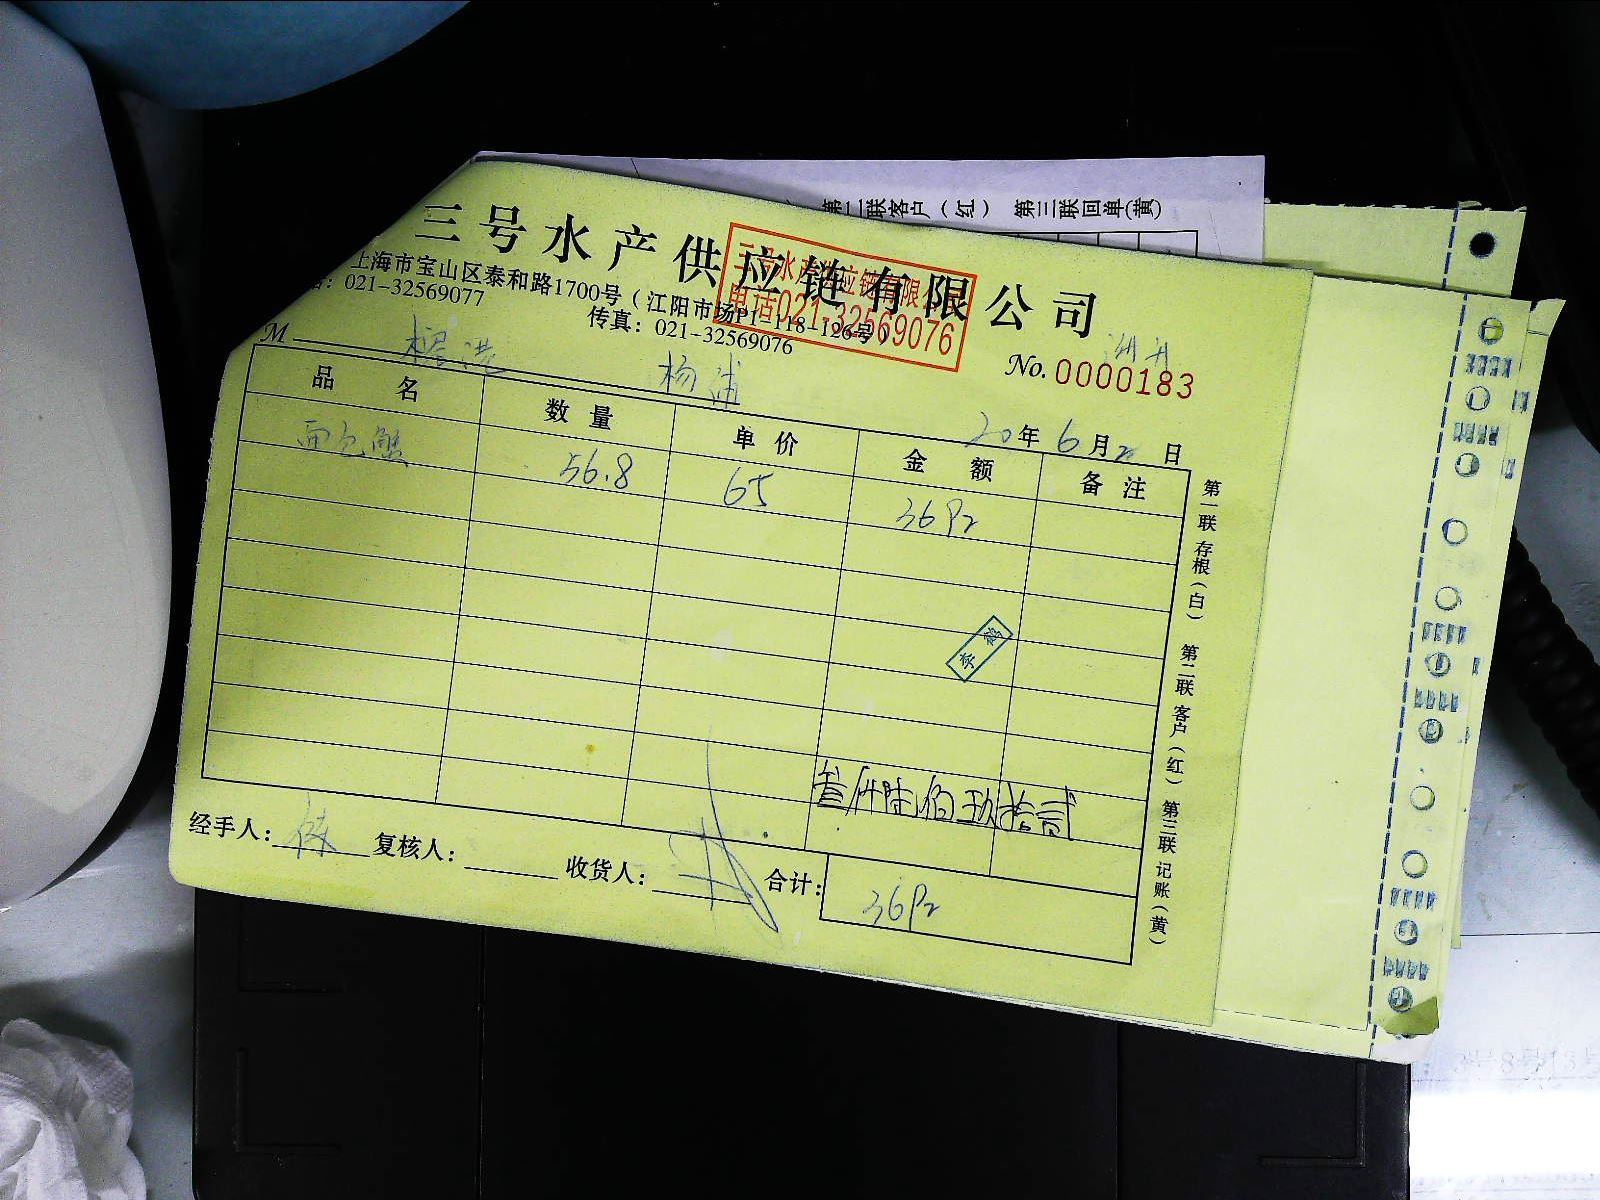 第二联客户（红） 第三联回单(黄)
三号水产供应链有限公司
上海市宝山区泰和路1700号（江阳市场P1-118-126号）
：021-32569077 传真：021-32569076
三号水产供应链有限公司
电话021-32569076
No. 0000183
M
杨浦
20年6月2日
品名 数量 单价 金额 备注
面包蟹 56.8 65 3692
李鹤
叁仟陆佰玖拾贰
经手人： 复核人： 收货人： 合计： 3692
第一联 存根（白） 第二联 客户（红） 第三联 记账（黄）